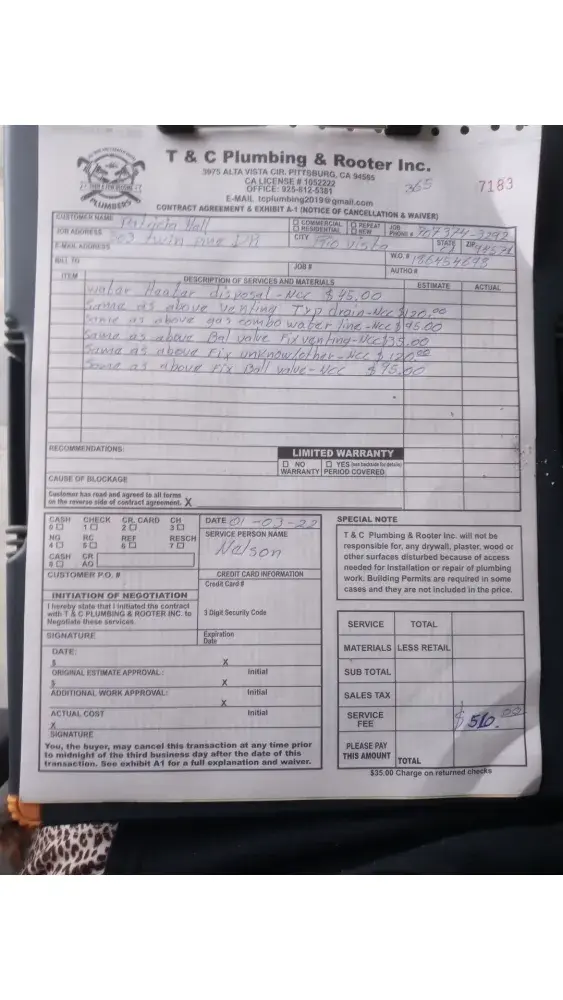 T & C Plumbing & Rooter Inc.
3975 ALTA VISTA CIR. PITTSBURG, CA 94565
CA LICENSE # 1052222
OFFICE: 925-812-5381
E-MAIL tcplumbing2019@gmail.com
365
7183
PLUMBERS
CONTRACT AGREEMENT & EXHIBIT A-1 (NOTICE OF CANCELLATION & WAIVER)
CUSTOMER NAME Patricia Hall
COMMERCIAL REPEAT
RESIDENTIAL NEW
JOB PHONE # 707374-3292
JOB ADDRESS 203 twin pine DR
CITY Rio vista
STATE CA
ZIP 94571
E-MAIL ADDRESS
W.O. # 186454693
BILL TO
JOB #
AUTHO #
ITEM DESCRIPTION OF SERVICES AND MATERIALS ESTIMATE ACTUAL
water Heater disposal-Ncc $45.00
Same as above venting Typ drain-Ncc $120.00
Same as above gas combo water line-Ncc $95.00
Same as above Bal valve Fix venting-Ncc $35.00
Same as above Fix unknow/other-Ncc $120.00
Same as above Fix Ball valve-Ncc $95.00
RECOMMENDATIONS:
LIMITED WARRANTY
NO YES (see backside for details)
WARRANTY PERIOD COVERED
CAUSE OF BLOCKAGE
Customer has read and agreed to all terms
on the reverse side of contract agreement. X
CASH CHECK CR. CARD CH
0 1 2 3
NG RC REF RESCH
4 5 6 7
CASH CR
8 AG
DATE 01-03-22
SERVICE PERSON NAME
Nelson
CUSTOMER P.O. #
CREDIT CARD INFORMATION
Credit Card #
INITIATION OF NEGOTIATION
I hereby state that I initiated the contract
with T & C PLUMBING & ROOTER INC. to
Negotiate these services.
3 Digit Security Code
SIGNATURE
Expiration
Date
DATE:
$ X
ORIGINAL ESTIMATE APPROVAL: Initial
$ X
ADDITIONAL WORK APPROVAL: Initial
X
ACTUAL COST Initial
X
SIGNATURE
You, the buyer, may cancel this transaction at any time prior
to midnight of the third business day after the date of this
transaction. See exhibit A1 for a full explanation and waiver.
SPECIAL NOTE
T & C Plumbing & Rooter Inc. will not be
responsible for, any drywall, plaster, wood or
other surfaces disturbed because of access
needed for installation or repair of plumbing
work. Building Permits are required in some
cases and they are not included in the price.
SERVICE TOTAL
MATERIALS LESS RETAIL
SUB TOTAL
SALES TAX
SERVICE
FEE $510.00
PLEASE PAY
THIS AMOUNT TOTAL
$35.00 Charge on returned checks